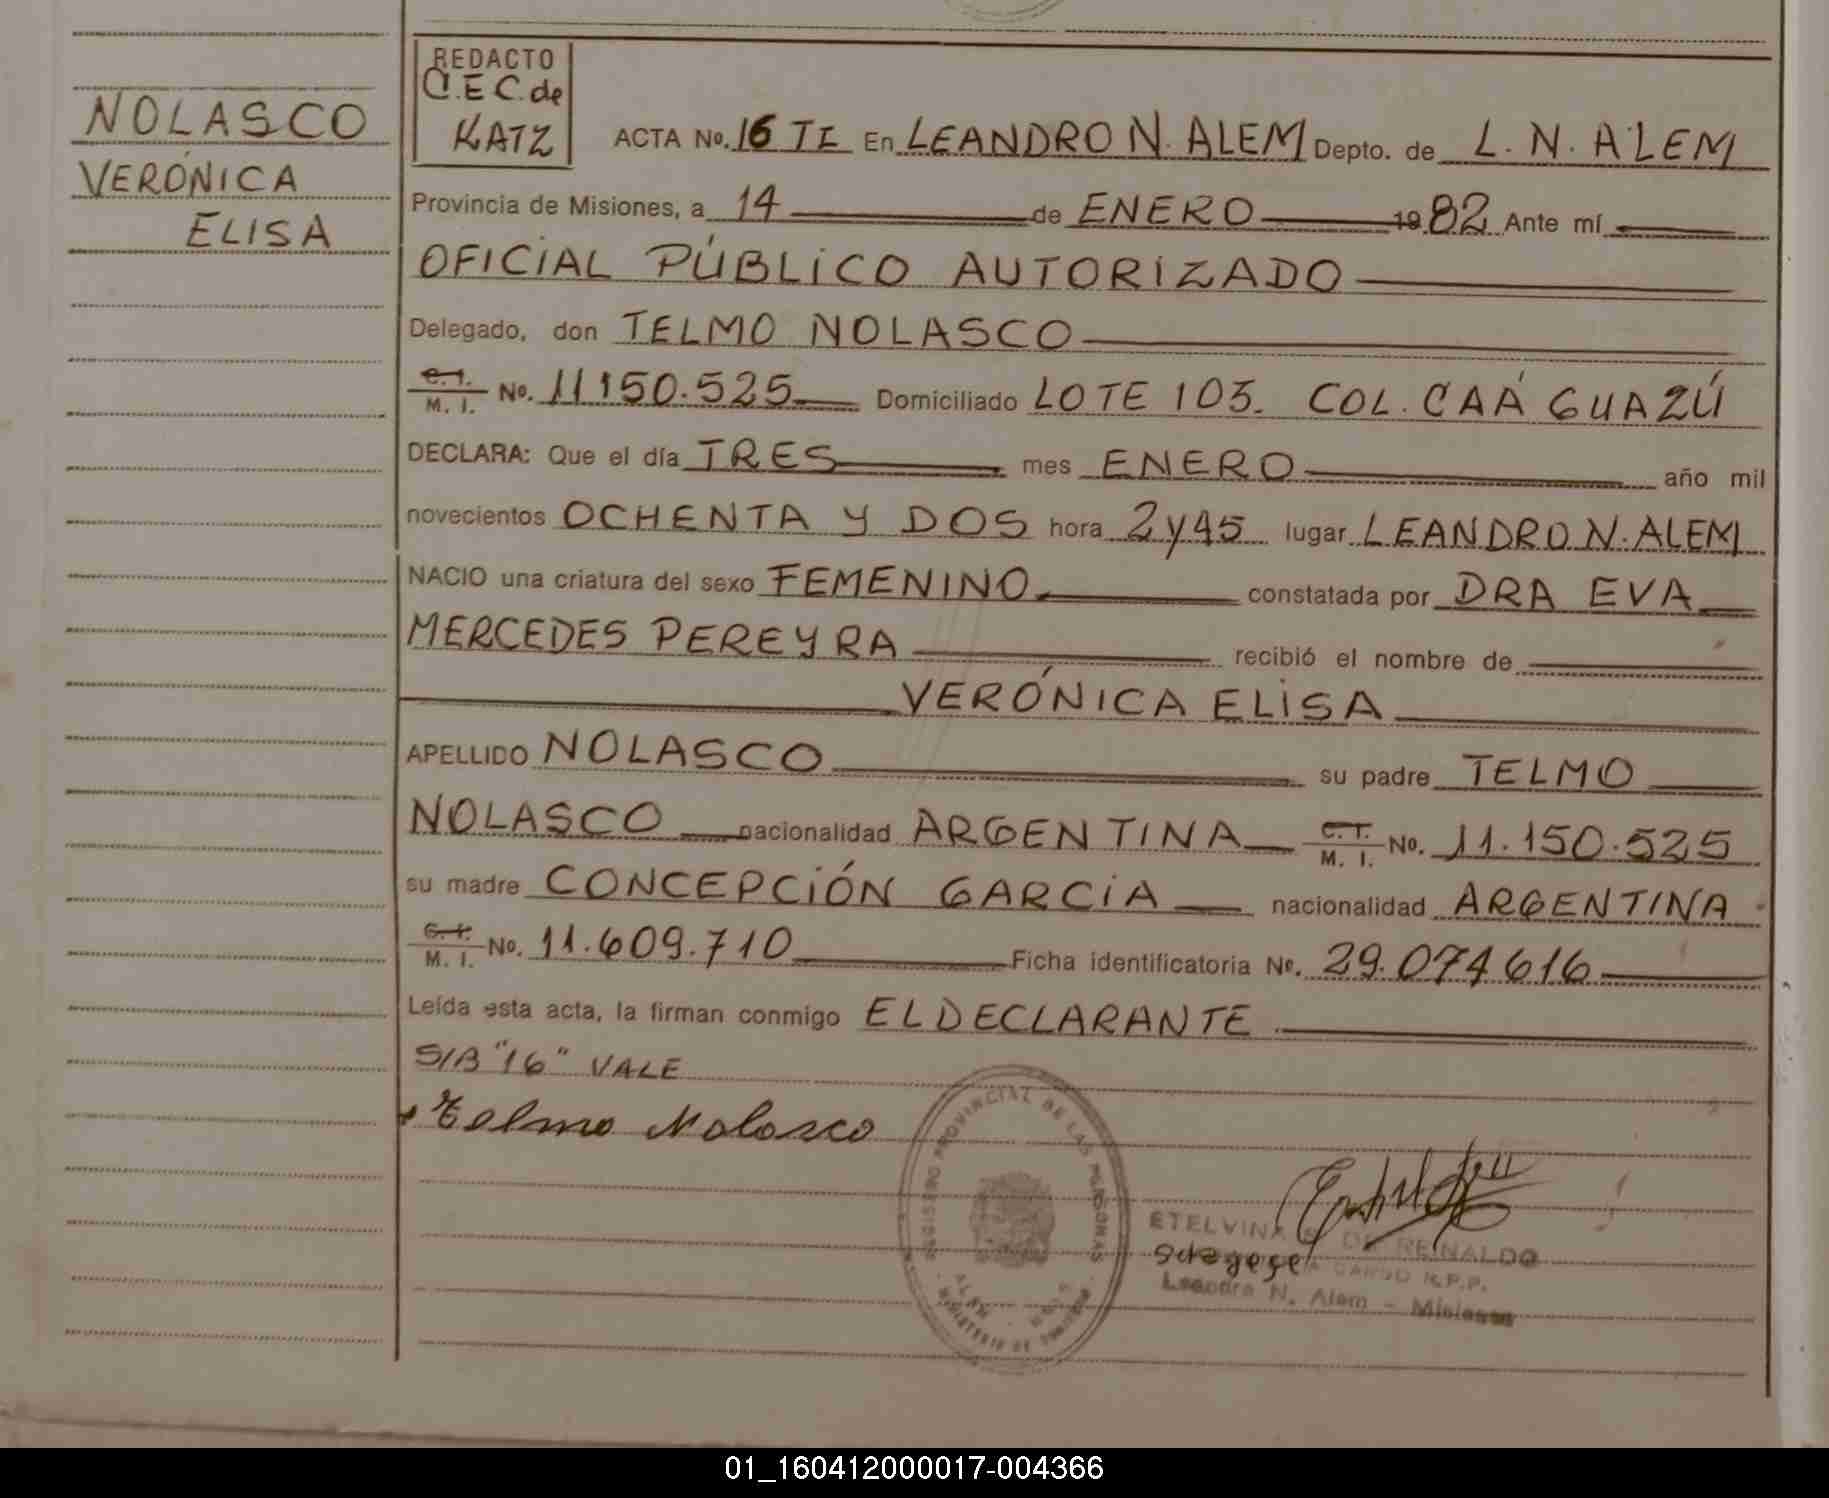 NOLASCO
VERÓNICA
ELISA
REDACTO
C.E.C. de
KATZ
ACTA No. 16 TI En LEANDRO N. ALEM Depto. de L. N. ALEM
Provincia de Misiones, a 14 de ENERO 1982 Ante mí
OFICIAL PÚBLICO AUTORIZADO
Delegado, don TELMO NOLASCO
C. I.
M. I. No. 11150.525 Domiciliado LOTE 103. COL. CAÁ GUAZÚ
DECLARA: Que el día TRES mes ENERO año mil
novecientos OCHENTA Y DOS hora 2 y 45 lugar LEANDRO N. ALEM
NACIO una criatura del sexo FEMENINO constatada por DRA EVA
MERCEDES PEREYRA recibió el nombre de
VERÓNICA ELISA
APELLIDO NOLASCO su padre TELMO
NOLASCO nacionalidad ARGENTINA C. I. M. I. No. 11.150.525
su madre CONCEPCIÓN GARCIA nacionalidad ARGENTINA
C. I.
M. I. No. 11.609.710 Ficha identificatoria No. 29.074.616
Leída esta acta, la firman conmigo EL DECLARANTE
S/B "16" VALE
Telmo Nolasco
REGISTRO PROVINCIAL DE LAS PERSONAS
ETELVINA S. DE REINALDO
CARGO R.P.P.
Leandro N. Alem - Misiones
01_160412000017-004366